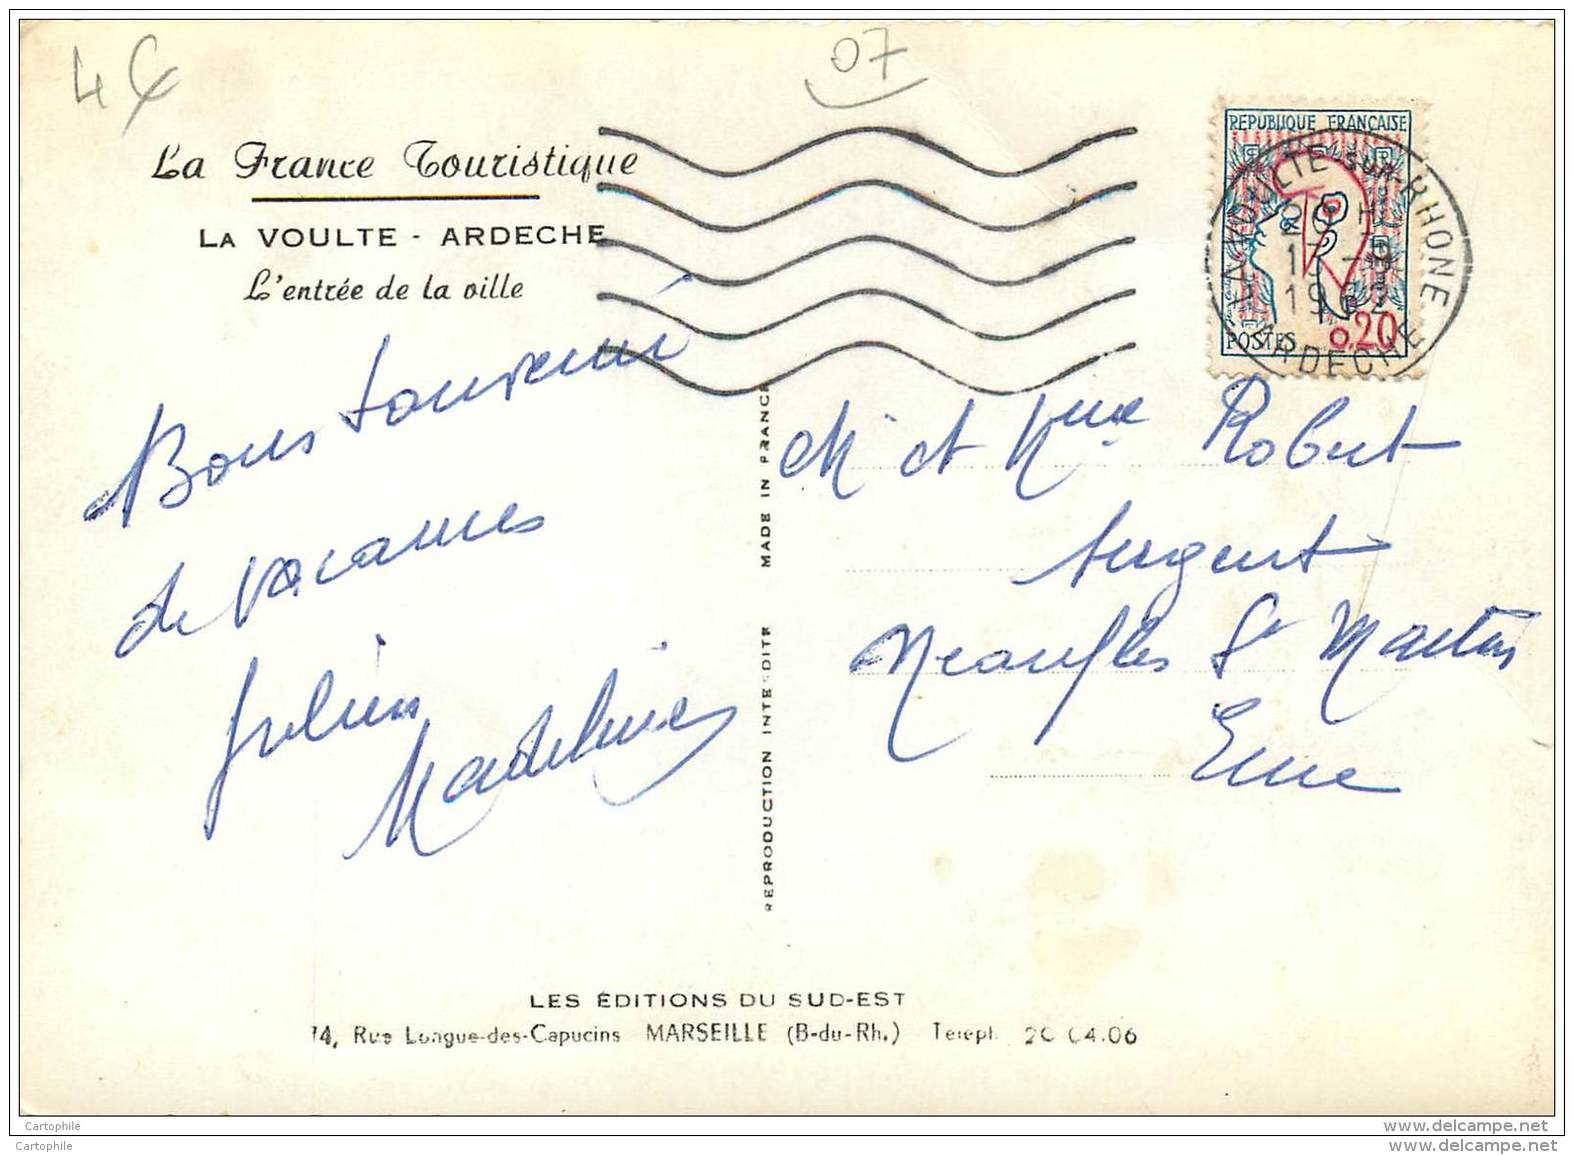 4€
07
La France Touristique
LA VOULTE - ARDECHE
L'entrée de la ville
REPUBLIQUE FRANÇAISE
POSTES 0,20
LA VOULTE SUR-RHONE
ARDECHE
1962
Bons souvenirs
de vacances
Julien
Madeleine
M et Mme Robert
Sergent
Neaufles St Martin
Eure
MADE IN FRANCE
REPRODUCTION INTERDITE
LES ÉDITIONS DU SUD-EST
14, Rue Longue-des-Capucins MARSEILLE (B-du-Rh.) Téléph. 20 04.06
Cartophile
www.delcampe.net
Cartophile
www.delcampe.net